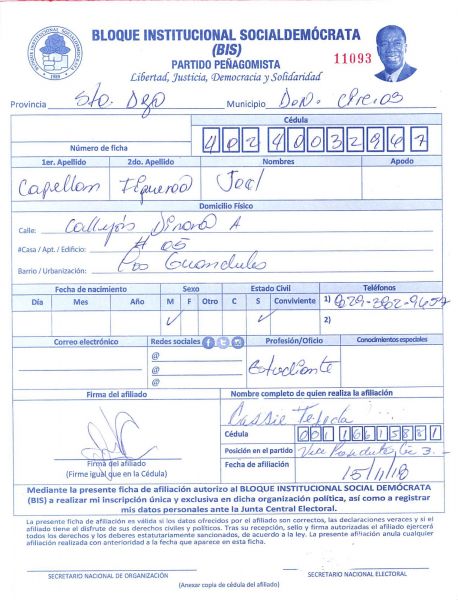 BLOQUE INSTITUCIONAL SOCIALDEMÓCRATA
(BIS)
PARTIDO PEÑAGOMISTA
11093
Libertad, Justicia, Democracia y Solidaridad
Provincia Sto. Dgo Municipio
Cédula
Número de ficha 40240032967
1er. Apellido 2do. Apellido Nombres Apodo
Capellan Figueroa Joel
Domicilio Físico
Calle: Callejón A
#Casa / Apt. / Edificio: # 05
Barrio / Urbanización: Los Guandules
Fecha de nacimiento Sexo Estado Civil Teléfonos
Día Mes Año M F Otro C S Conviviente 1) 829-202-9657
✓ ✓ 2)
Correo electrónico Redes sociales Profesión/Oficio Conocimientos especiales
@
@ Estudiante
@
Firma del afiliado Nombre completo de quien realiza la afiliación
Cassie Tejeda
Cédula 00116615881
Posición en el partido Vice
Firma del afiliado Fecha de afiliación 15/11/18
(Firme igual que en la Cédula)
Mediante la presente ficha de afiliación autorizo al BLOQUE INSTITUCIONAL SOCIAL DEMÓCRATA
(BIS) a realizar mi inscripción única y exclusiva en dicha organización política, así como a registrar
mis datos personales ante la Junta Central Electoral.
La presente ficha de afiliación es válida si los datos ofrecidos por el afiliado son correctos, las declaraciones veraces y si el
afiliado tiene el disfrute de sus derechos civiles y políticos. Tras su recepción, sello y firma autorizados el afiliado ejercerá
todos los derechos y los deberes estatutariamente sancionados, de acuerdo a la ley. La presente afiliación anula cualquier
afiliación realizada con anterioridad a la fecha que aparece en esta ficha.
SECRETARIO NACIONAL DE ORGANIZACIÓN SECRETARIO NACIONAL ELECTORAL
(Anexar copia de cédula del afiliado)